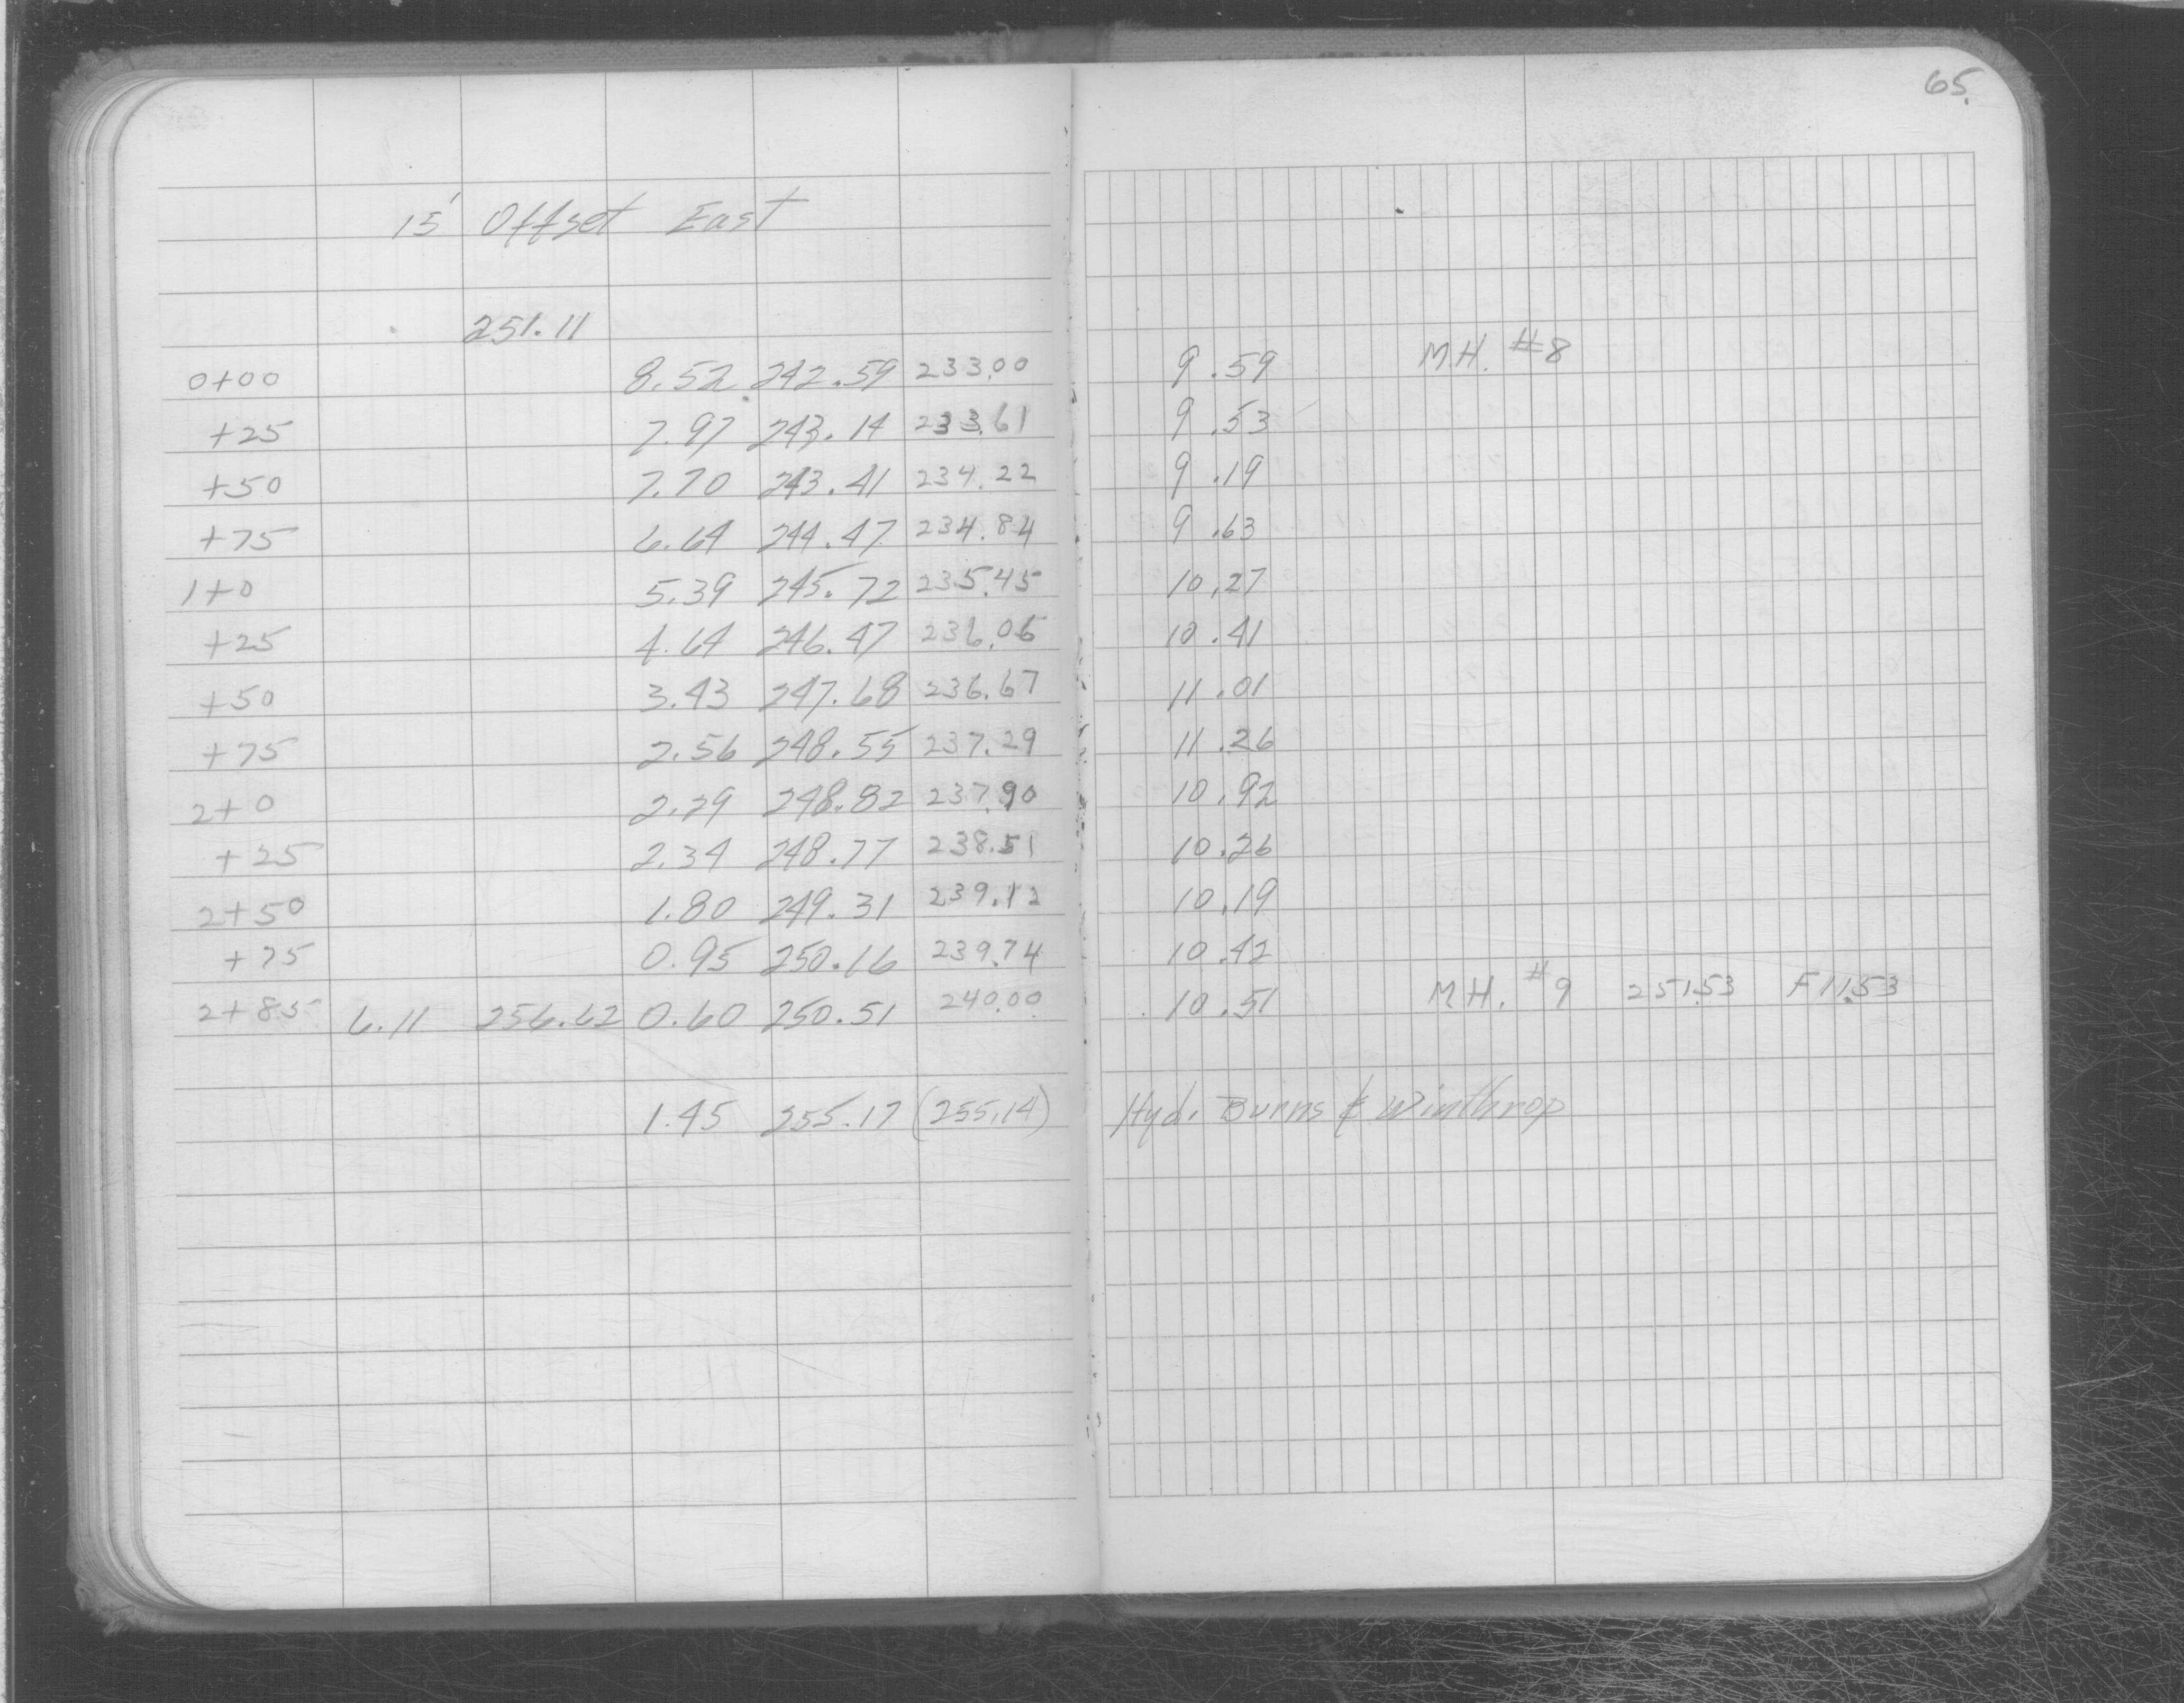 65.
15' Offset East
251.11
0+00 8.52 242.59 233.00 9.59 M.H. #8
+25 7.97 243.14 233.61 9.53
+50 7.70 243.41 234.22 9.19
+75 6.64 244.47 234.84 9.63
1+0 5.39 245.72 235.45 10.27
+25 4.64 246.47 236.06 10.41
+50 3.43 247.68 236.67 11.01
+75 2.56 248.55 237.29 11.26
2+0 2.29 248.82 237.90 10.92
+25 2.34 248.77 238.51 10.26
2+50 1.80 249.31 239.12 10.19
+75 0.95 250.16 239.74 10.42
2+85 6.11 256.62 0.60 250.51 240.00 10.51 M.H. #9 251.53 F11.53
1.45 255.17 (255.14) Hyd. Burns & Winthrop